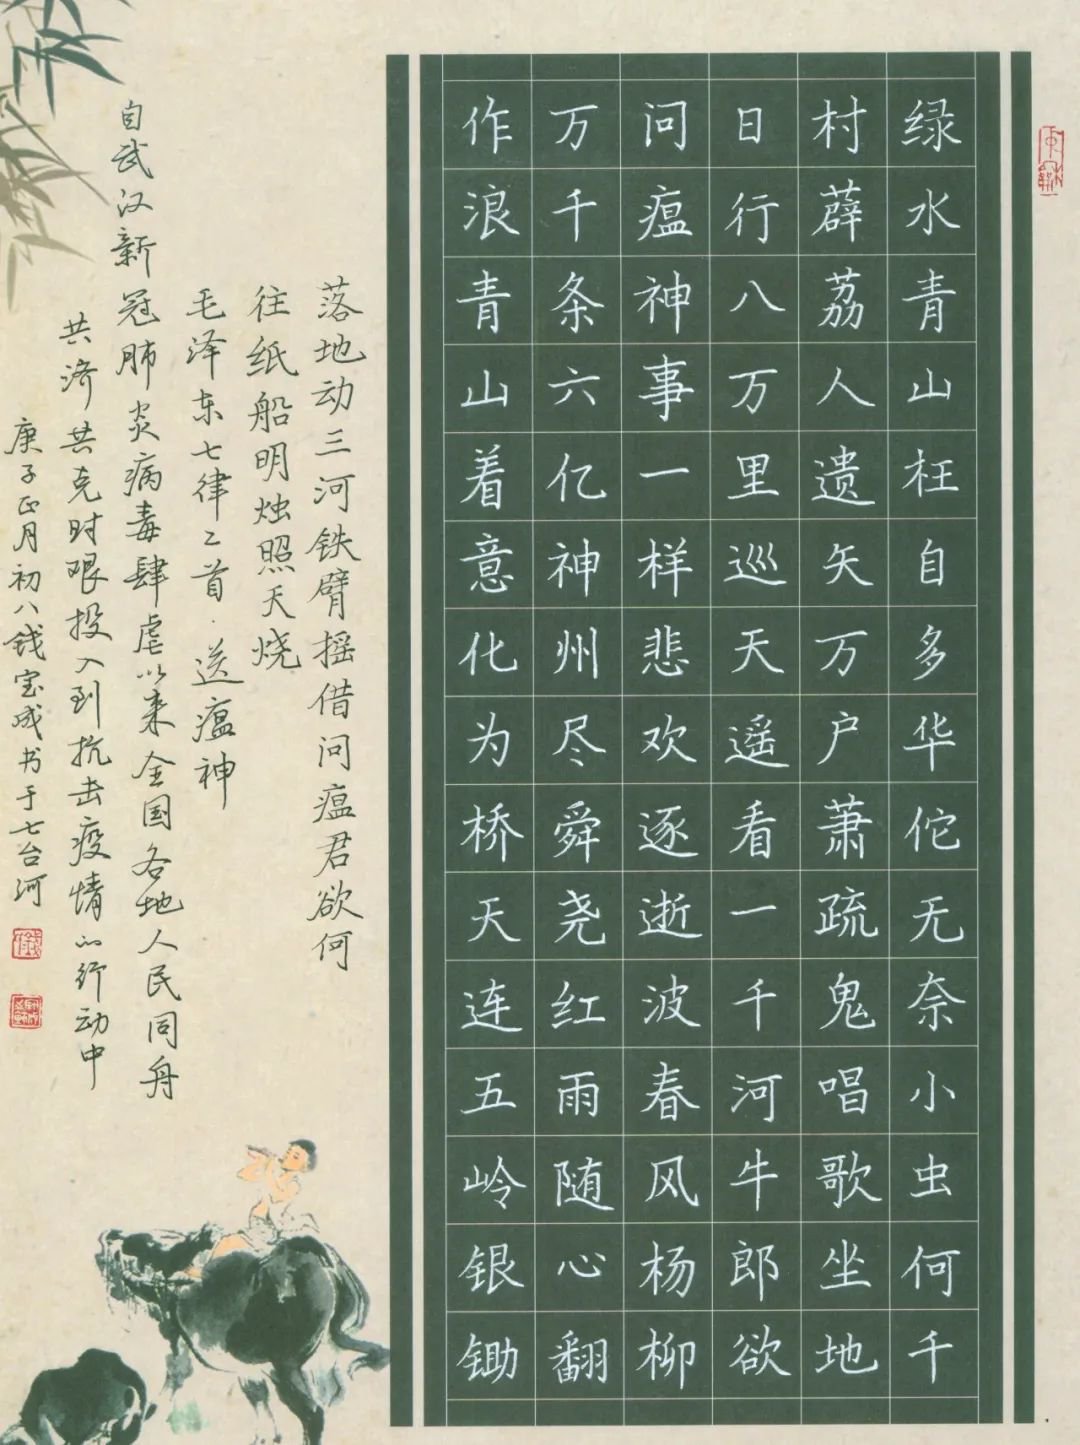 绿水青山枉自多华佗无奈小虫何千
村薜荔人遗矢万户萧疏鬼唱歌坐地
日行八万里巡天遥看一千河牛郎欲
问瘟神事一样悲欢逐逝波春风杨柳
万千条六亿神州尽舜尧红雨随心翻
作浪青山着意化为桥天连五岭银锄
落地动三河铁臂摇借问瘟君欲何
往纸船明烛照天烧
毛泽东七律二首·送瘟神
自武汉新冠肺炎病毒肆虐以来全国各地人民同舟
共济共克时艰投入到抗击疫情的行动中
庚子正月初八钱宝成书于七台河